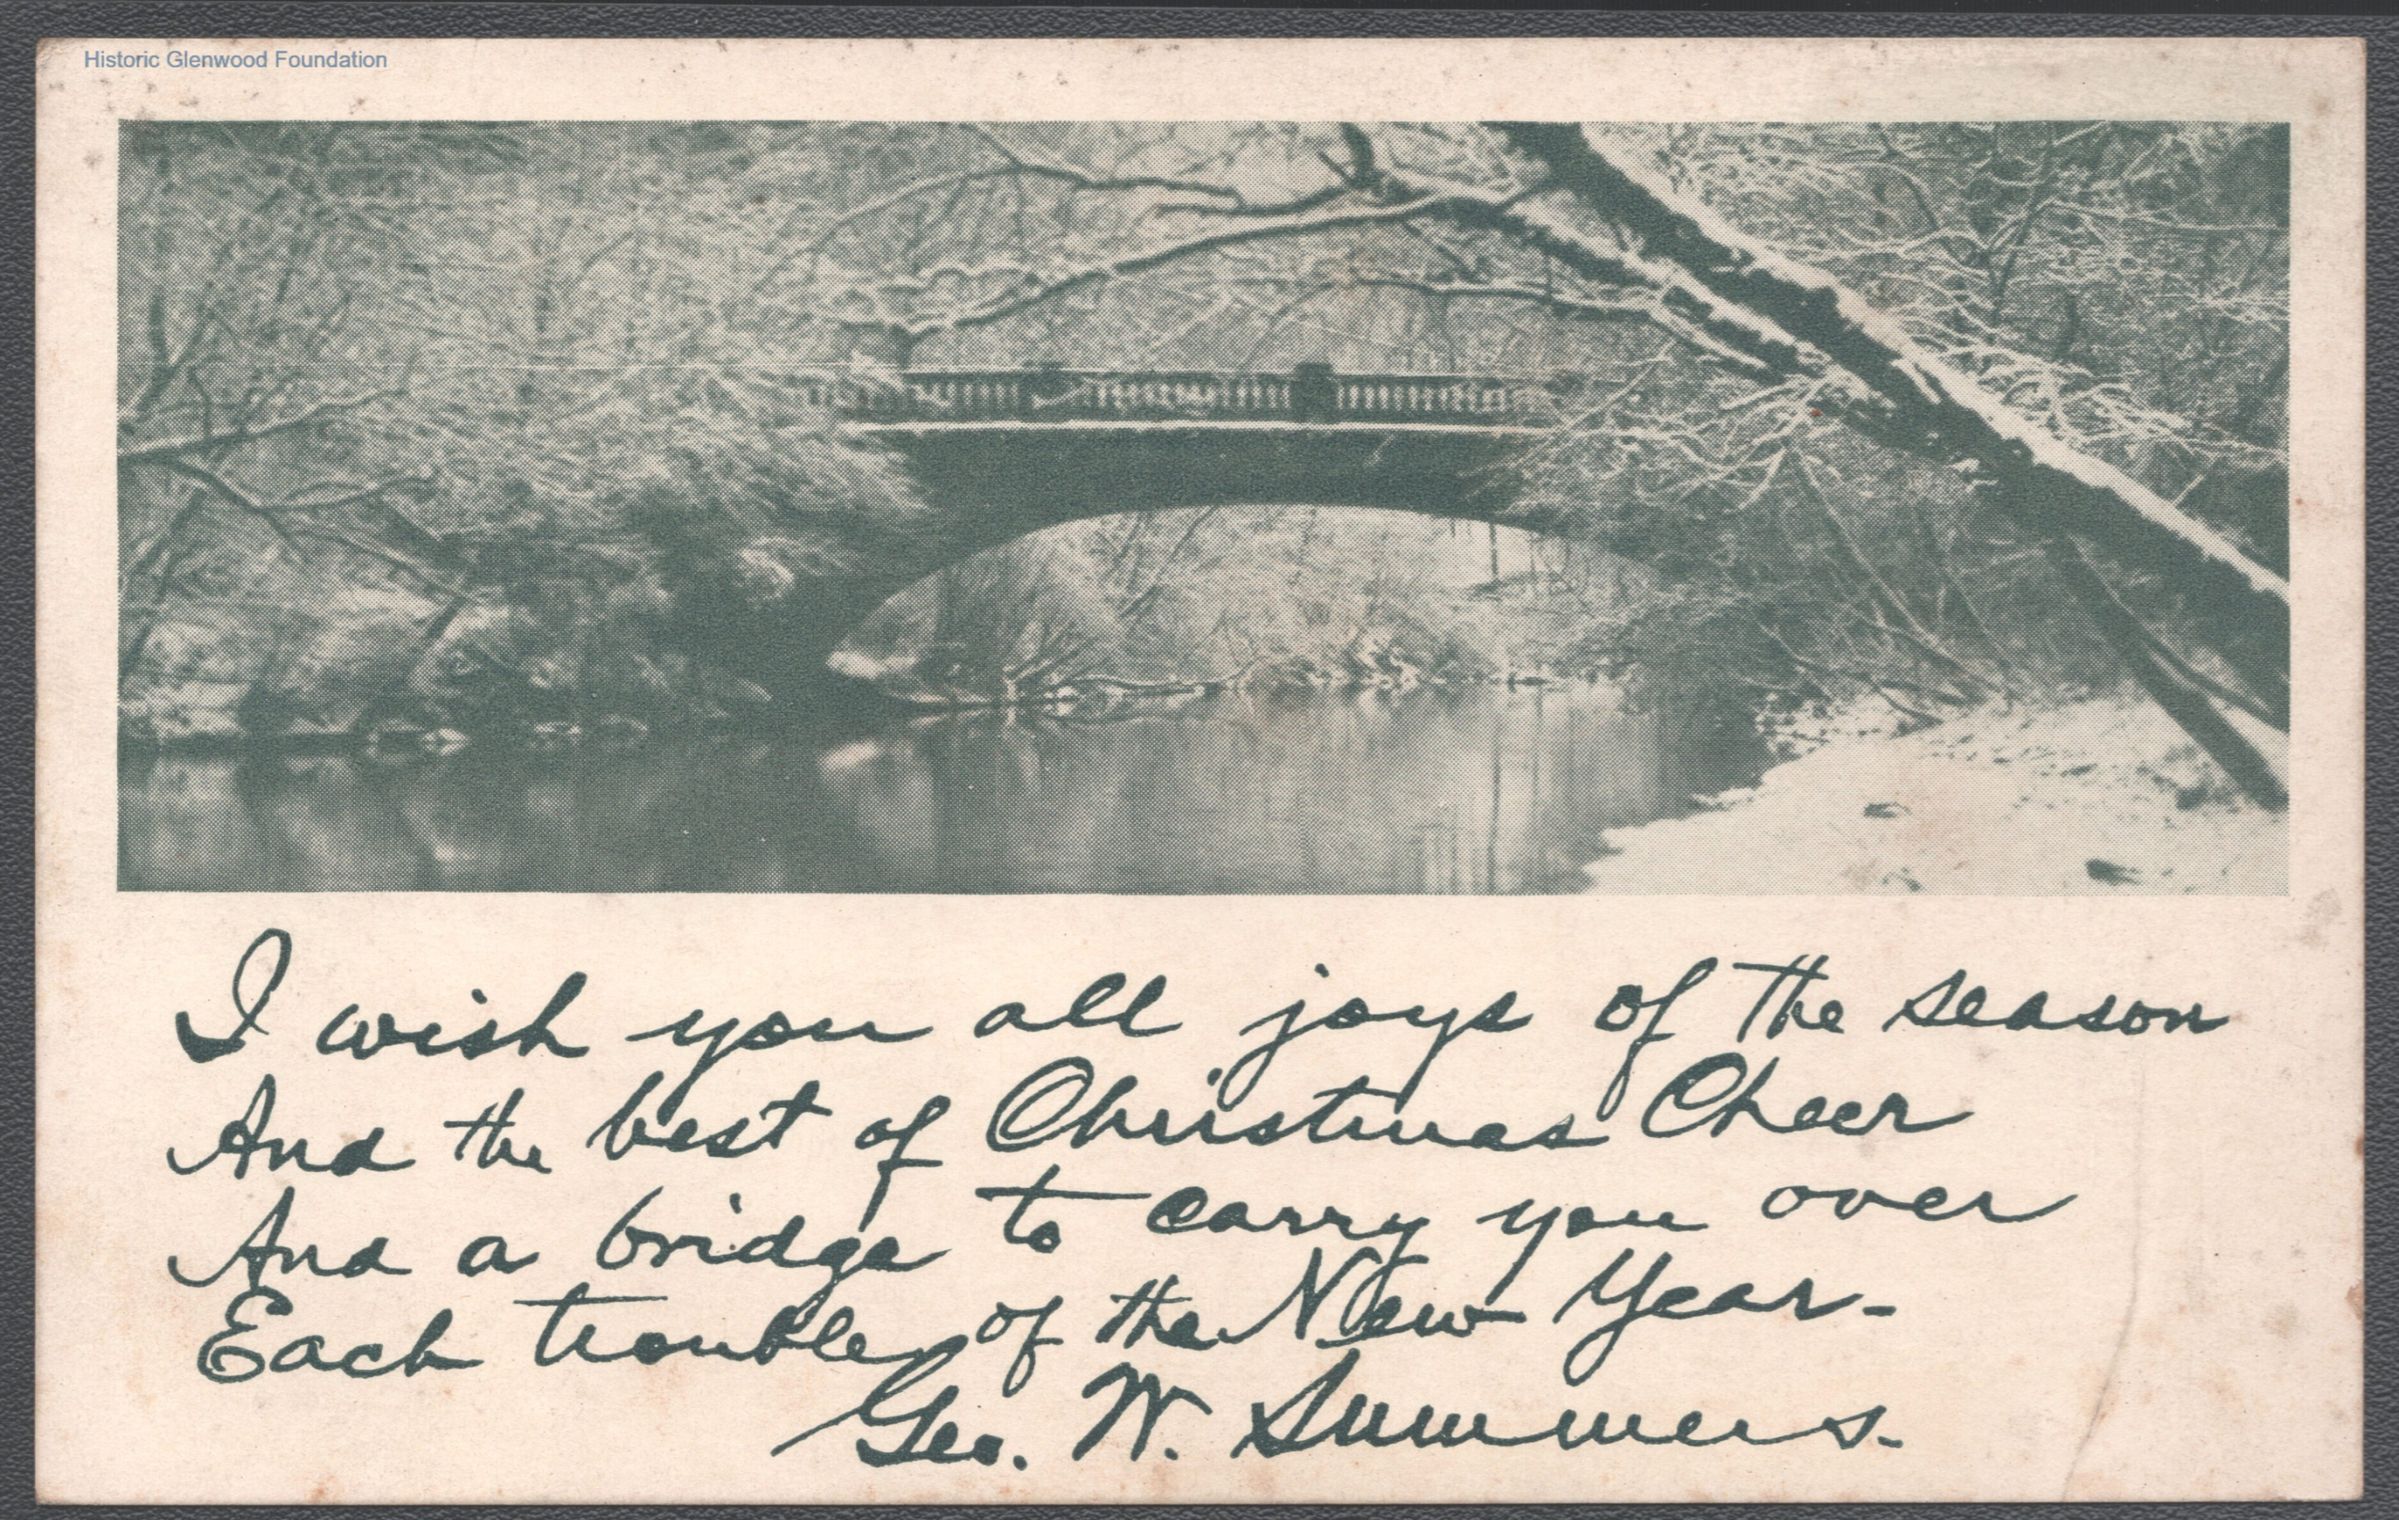 Historic Glenwood Foundation
I wish you all joys of the season
And the best of Christmas Cheer
And a bridge to carry you over
Each trouble of the New Year-
Geo. W. Summers.